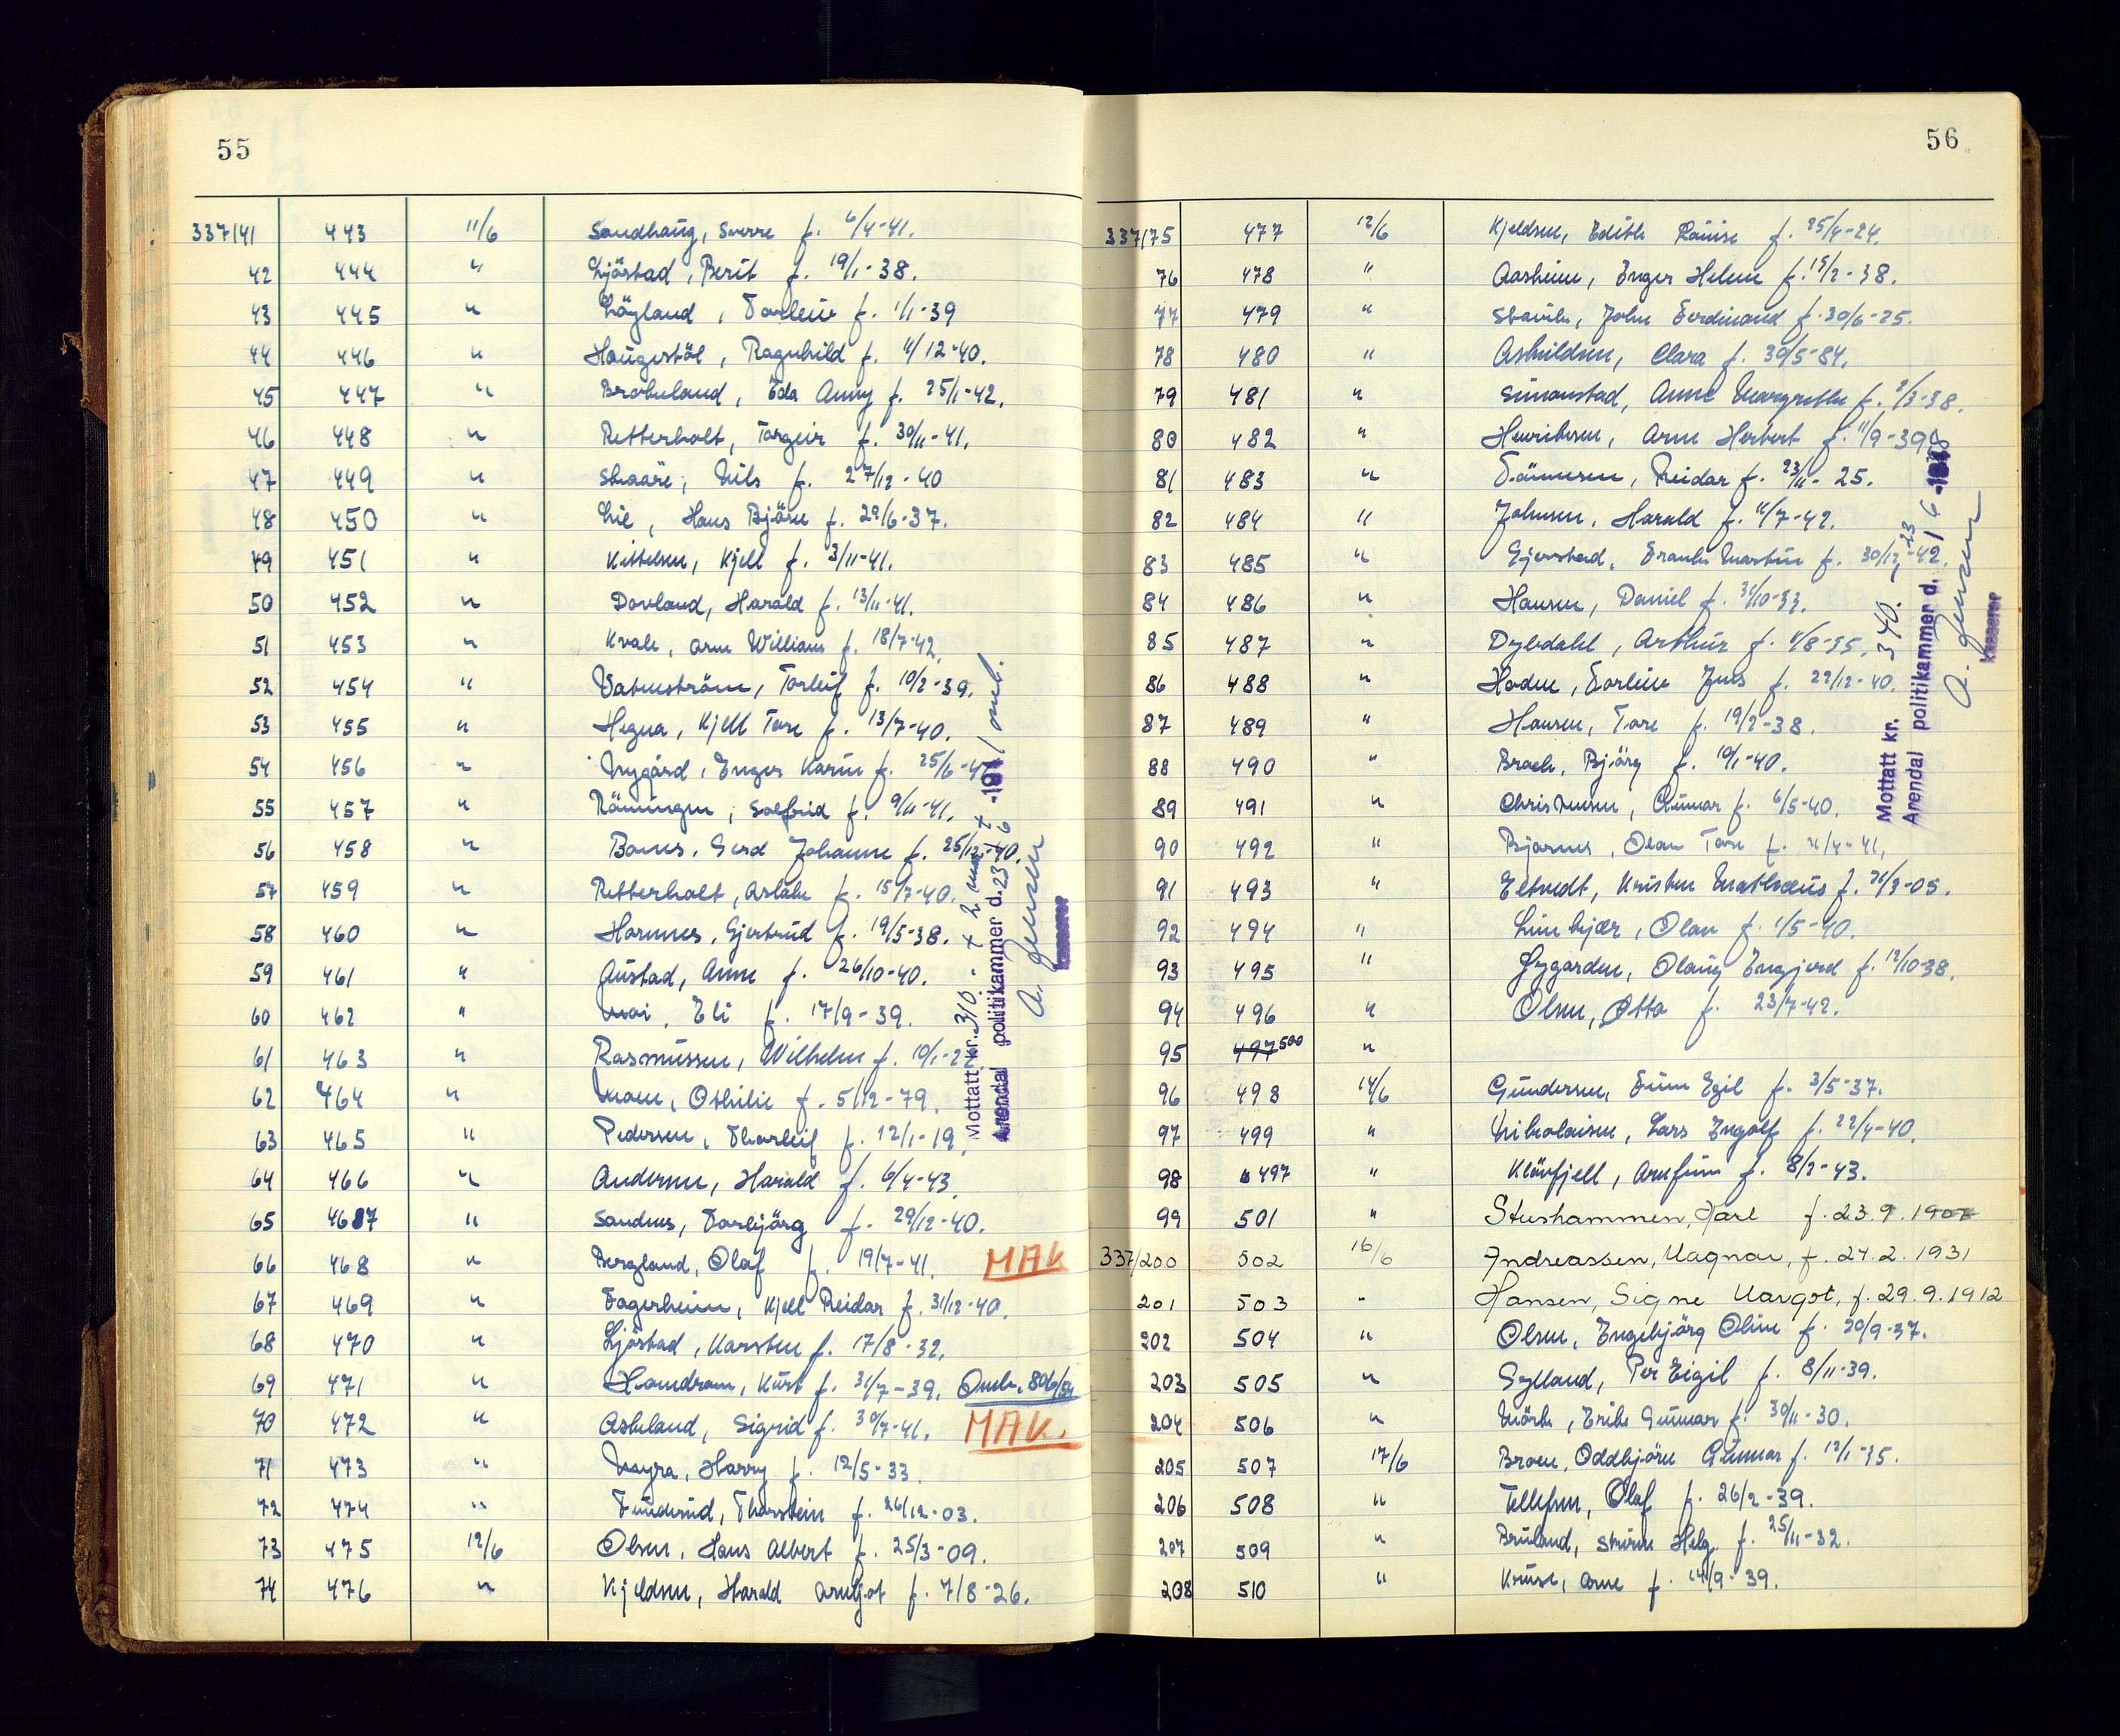 55
337141 443 11/6 Sandhaug, Sverre f. 6/4-41.
42 444 " Ljöstad, Berit f. 19/1-38.
43 445 " Höyland, Torleiv f. 1/1-39
44 446 " Haugestöl, Ragnhild f. 11/12-40.
45 447 " Brokeland, Eda Anny f. 25/1-42.
46 448 " Retterholt, Torgeir f. 30/11-41.
47 449 " Skaare, Nils f. 27/12-40
48 450 " Lie, Hans Björn f. 29/6-37.
49 451 " Kittelsen, Kjell f. 3/11-41.
50 452 " Dovland, Harald f. 13/11-41.
51 453 " Kvale, Arne William f. 18/7-42.
52 454 " Vatnström, Torleif f. 10/2-39.
53 455 " Hegna, Kjell Tore f. 13/7-40.
54 456 " Nygård, Inger Karin f. 25/6-41
55 457 " Röningen, Solfrid f. 9/11-41.
56 458 " Bones, Gerd Johanne f. 25/12-40.
57 459 " Retterholt, Aslak f. 15/7-40.
58 460 " Hommes, Gjertrud f. 19/5-38.
59 461 " Austad, Anne f. 26/10-40.
60 462 " Moi, Eli f. 17/9-39.
61 463 " Rasmussen, Wilhelm f. 10/1-2
62 464 " Moen, Othilie f. 5/12-79.
63 465 " Pedersen, Thorleif f. 12/1-19.
64 466 " Andersen, Harald f. 6/4-43.
65 467 " Sandnes, Torbjörg f. 29/12-40.
66 468 " Bergland, Olaf f. 19/7-41. MAK
67 469 " Fagerheim, Kjell Reidar f. 31/12-40.
68 470 " Ljöstad, Karsten f. 17/8-32.
69 471 " Homdrom, Kurt f. 31/7-39. Omb. 806/54
70 472 " Askeland, Sigrid f. 30/7-41. MAK.
71 473 " Myra, Harry f. 12/5-33.
72 474 " Finderud, Thorstein f. 26/12-03.
73 475 12/6 Olsen, Hans Albert f. 25/3-09.
74 476 " Kjeldsen, Harald Arnljot f. 7/8-26.
Mottatt kr. 310.- + 2
Arendal politikammer d. 23/6 -19
A. Jensen
kasserer
56
337/75 477 12/6 Kjeldsen, Edith Louise f. 25/4-24.
76 478 " Aasheim, Inger Helene f. 15/2-38.
77 479 " Stavik, John Ferdinand f. 30/6-25.
78 480 " Askildsen, Clara f. 30/5-84.
79 481 " Simonstad, Anne Margrethe f. 9/3-38.
80 482 " Henriksen, Arne Herbert f. 11/9-39
81 483 " Tönnesen, Reidar f. 23/11-25.
82 484 " Johnsen, Harald f. 11/7-42.
83 485 " Gjerstad, Frank Martin f. 30/12-42.
84 486 " Hansen, Daniel f. 31/10-33.
85 487 " Dybdahl, Arthur f. 4/8-35.
86 488 " Hoden, Torleiv Jens f. 22/12-40.
87 489 " Hansen, Tore f. 19/2-38.
88 490 " Braek, Björg f. 19/1-40.
89 491 " Christensen, Gunnar f. 6/5-40.
90 492 " Bjornes, Olav Tore f. 11/4-41.
91 493 " Eltvedt, Kristen Mathæus f. 31/3-05.
92 494 " Limkjær, Olav f. 1/5-40.
93 495 " Öygarden, Olaug Ingjerd f. 12/10-38.
94 496 " Olsen, Otto f. 23/7-42.
95 497 500 "
96 498 14/6 Gundersen, Finn Egil f. 3/5-37.
97 499 " Nikolaisen, Lars Ingolf f. 22/4-40.
98 497 " Klövfjell, Arnfinn f. 8/2-43.
99 501 " Stushammen, Karl f. 23.9.1907
337/200 502 16/6 Andreassen, Magnar, f. 24.2.1931
201 503 " Hansen, Signe Margot, f. 29.9.1912
202 504 " Olsen, Ingebjörg Oline f. 20/9-37.
203 505 " Sylland, Per Eigil f. 8/11-39.
204 506 " Mörk, Erik Gunnar f. 30/11-30.
205 507 17/6 Broen, Oddbjörn Gunnar f. 12/1-35.
206 508 " Tellefsen, Olaf f. 26/2-39.
207 509 " Bruland, Helg. f. 25/11-32.
208 510 " Kruse, Arne f. 14/9-39.
Mottatt kr. 340.
Arendal politikammer d. 23/6
A. Jensen
kasserer